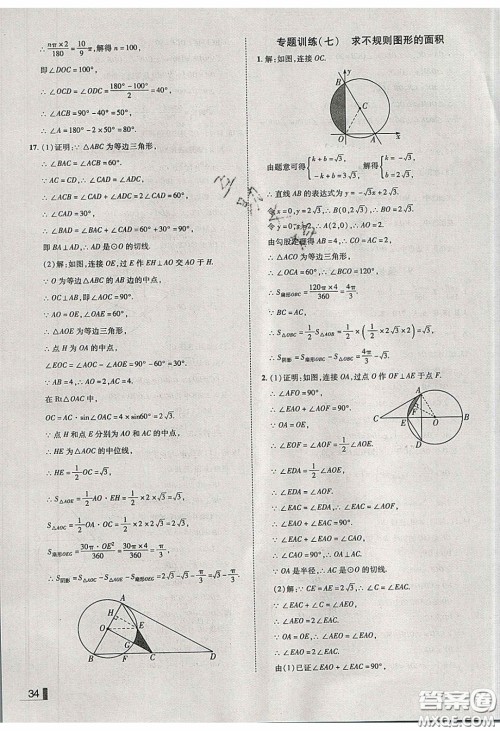 ∴ nπ×2/180 = 10π/9, 解得 n=100,
即∠DOC=100°,
∴ ∠OCD=∠ODC=(180°-100°)/2=40°,
∴ ∠ACB=90°-40°=50°,
∴ ∠A=180°-2×50°=80°.
17. (1)证明:∵ △ABC 为等边三角形,
∴ ∠BAC=∠ACB=60°,
∴ ∠ACB=∠CAD+∠ADC=60°.
∵ AC=CD,
∴ ∠CAD=∠ADC=30°,
∴ ∠BAD=∠BAC+∠CAD=90°,
即 BA⊥AD,∴ AD 是⊙O 的切线.
(2)解:如图,连接 OE,过 E 作 EH⊥AO 交 AO 于 H.
∵ O 为等边△ABC 的边 AB 的中点,
∴ OC⊥AB,即∠AOC=90°.
∵ △AOE 为等边三角形,
∴ 点 H 为 OA 的中点,
∴ ∠AOE=60°,
∴ ∠EOC=∠AOC-∠AOE=30°.
∵ AB=4,∴ AC=4,OA=2.
在 Rt△OAC 中,
OC=AC·sin∠OAC=4×sin60°=2√3.
∵ 点 H 和点 E 分别为 AO 与 AC 的中点,
∴ HE 为△AOC 的中位线,
∴ HE=1/2 OC=√3,
∴ S△AOE=1/2 AO·EH=1/2×2×√3=√3,
S△AOC=1/2 OA·OC=1/2×2×2√3=2√3,
S扇形OEG=30π·OE²/360=30π×4/360=π/3,
∴ S阴影=S△AOC-S△AOE-S扇形OEG=2√3-√3-π/3=√3-π/3.
A
H
O
E
G
B
F
C
D
34
专题训练(七) 求不规则图形的面积
1. 解:如图,连接 OC.
y
B
C
O
A
x
由题意可得{k+b=√3, -k+b=3√3, 解得{k=-√3, b=2√3.
∴ 直线 AB 的表达式为 y=-√3x+2√3.
令 x=0,y=2√3,∴ B(0,2√3),∴ OB=2√3.
令 y=0,x=2,∴ A(2,0),∴ OA=2.
由勾股定理得 AB=4,∴ CO=AC=2,
∴ △ACO 为等边三角形,
∴ ∠OCA=60°,∴ ∠BCO=120°.
∴ S扇形OBC=120π×4/360=4π/3.
∵ BC=AC,
∴ S△OBC=1/2 S△OBA=1/2×(1/2×2√3×2)=√3,
∴ S阴影=S扇形OBC-S△OBC=4π/3-√3.
2. (1)证明:如图,连接 OA,过点 O 作 OF⊥AE 于点 F.
∴ ∠AFO=90°,
∴ ∠EAO+∠AOF=90°.
∵ OA=OE,
∴ ∠EOF=∠AOF=1/2∠AOE.
∵ ∠EDA=1/2∠AOE,
∴ ∠EDA=∠AOF.
∵ ∠EAC=∠EDA,
∴ ∠EAC=∠AOF,
∴ ∠EAO+∠EAC=90°.
∵ ∠EAC+∠EAO=∠CAO,
∴ ∠CAO=90°,∴ OA⊥AC.
∵ OA 是半径,∴ AC 是⊙O 的切线.
(2)解:∵ CE=AE=2√3,
∴ ∠EAC=∠C.
∵ ∠EAC+∠C=∠AEO,
∴ ∠AEO=2∠EAC.
∵ OA=OE,∴ ∠AEO=∠EAO,
∴ ∠EAO=2∠EAC.
由(1)已证∠EAC+∠EAO=90°,
A
F
C
E
O
B
D
答案圈
MXQE.COM